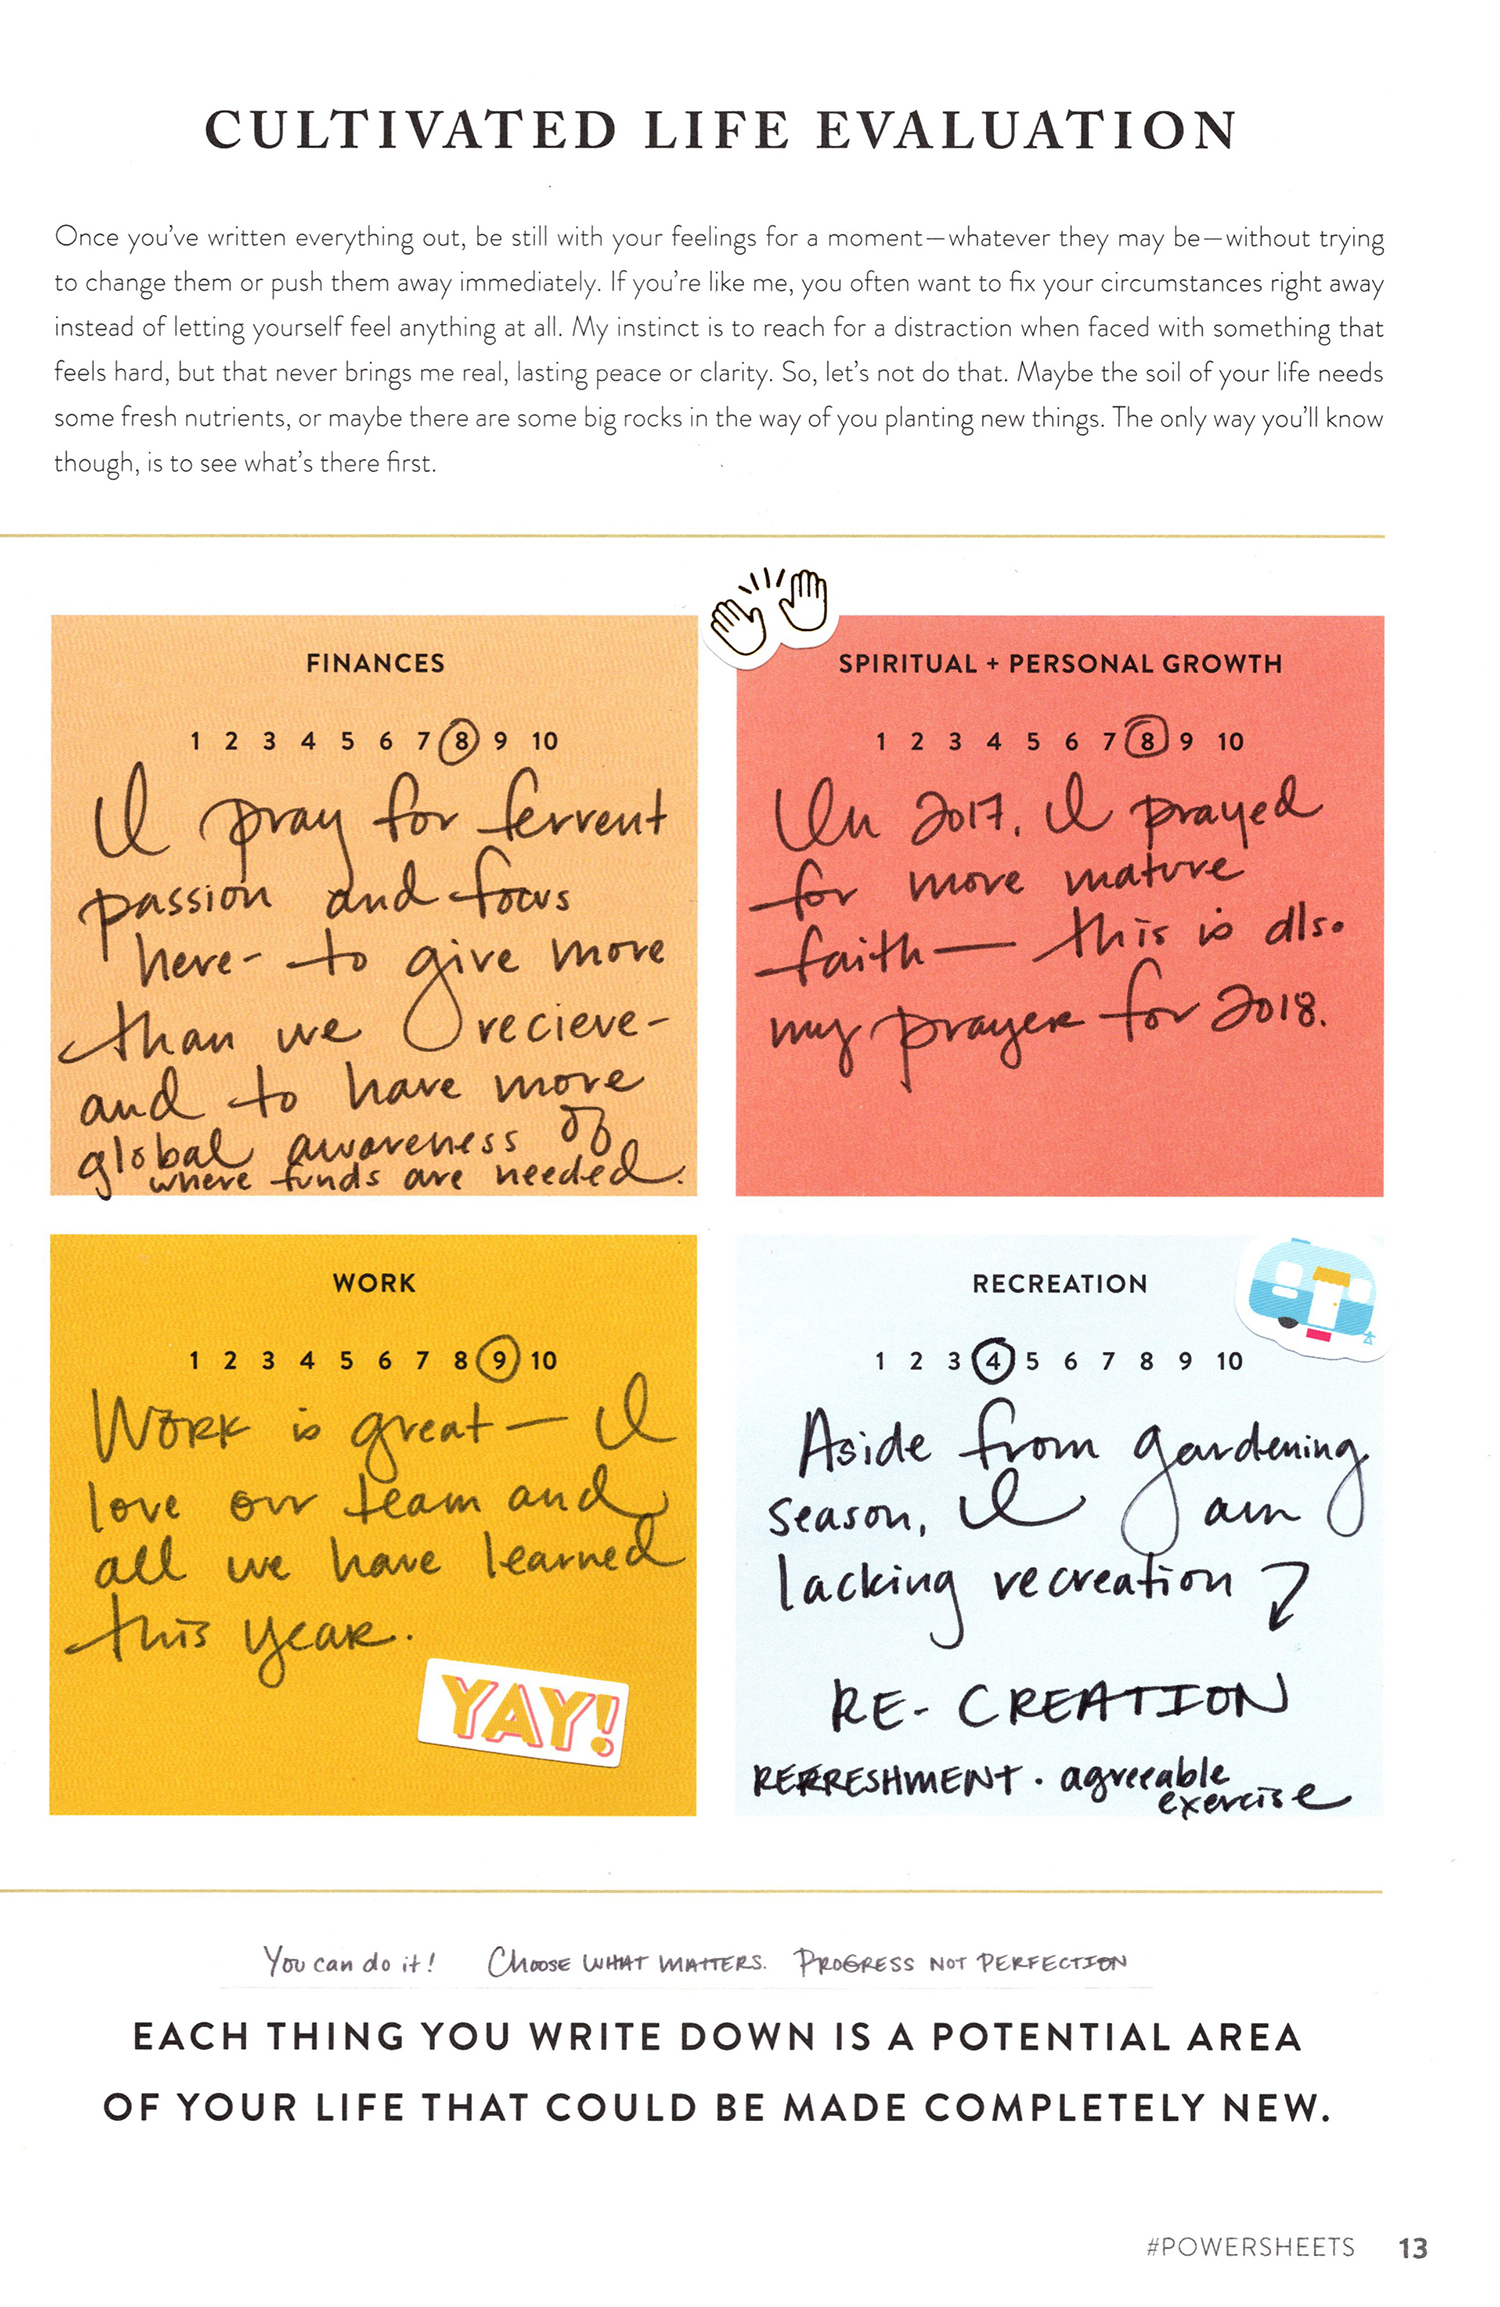 CULTIVATED LIFE EVALUATION
Once you've written everything out, be still with your feelings for a moment—whatever they may be—without trying
to change them or push them away immediately. If you're like me, you often want to fix your circumstances right away
instead of letting yourself feel anything at all. My instinct is to reach for a distraction when faced with something that
feels hard, but that never brings me real, lasting peace or clarity. So, let's not do that. Maybe the soil of your life needs
some fresh nutrients, or maybe there are some big rocks in the way of you planting new things. The only way you'll know
though, is to see what's there first.
FINANCES
1 2 3 4 5 6 7 8 9 10
I pray for fervent
passion and focus
here- to give more
than we recieve-
and to have more
global awareness of
where funds are needed.
SPIRITUAL + PERSONAL GROWTH
1 2 3 4 5 6 7 8 9 10
In 2017, I prayed
for more mature
faith— this is also
my prayer for 2018.
WORK
1 2 3 4 5 6 7 8 9 10
Work is great— I
love our team and
all we have learned
this year.
YAY!
RECREATION
1 2 3 4 5 6 7 8 9 10
Aside from gardening
season, I am
lacking recreation
RE-CREATION
REFRESHMENT · agreeable
exercise
You can do it! CHOOSE WHAT MATTERS. PROGRESS NOT PERFECTION
EACH THING YOU WRITE DOWN IS A POTENTIAL AREA
OF YOUR LIFE THAT COULD BE MADE COMPLETELY NEW.
#POWERSHEETS 13